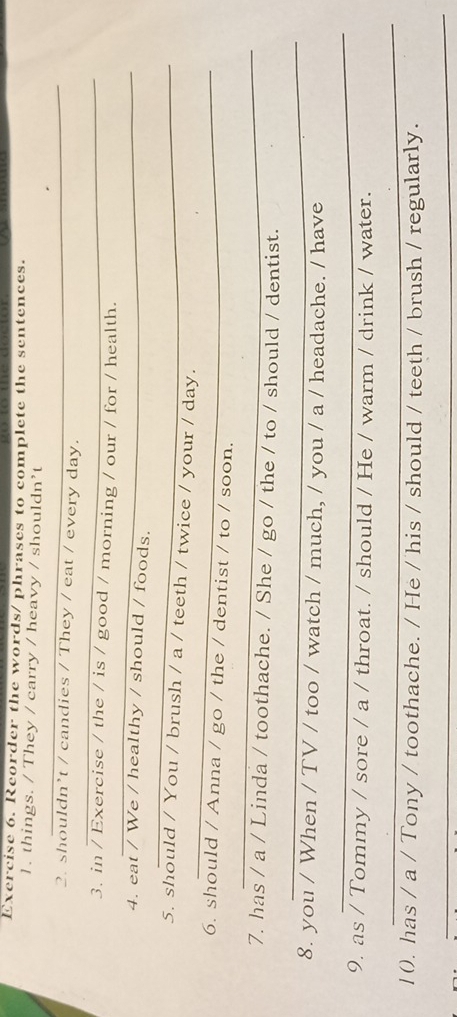 go to the doctor.
Exercise 6. Reorder the words/ phrases to complete the sentences.
1. things. / They / carry / heavy / shouldn't
2. shouldn't / candies / They / eat / every day.
3. in / Exercise / the / is / good / morning / our / for / health.
4. eat / We / healthy / should / foods.
5. should / You / brush / a / teeth / twice / your / day.
6. should / Anna / go / the / dentist / to / soon.
7. has / a / Linda / toothache. / She / go / the / to / should / dentist.
8. you / When / TV / too / watch / much, / you / a / headache. / have
9. as / Tommy / sore / a / throat. / should / He / warm / drink / water.
10. has / a / Tony / toothache. / He / his / should / teeth / brush / regularly.